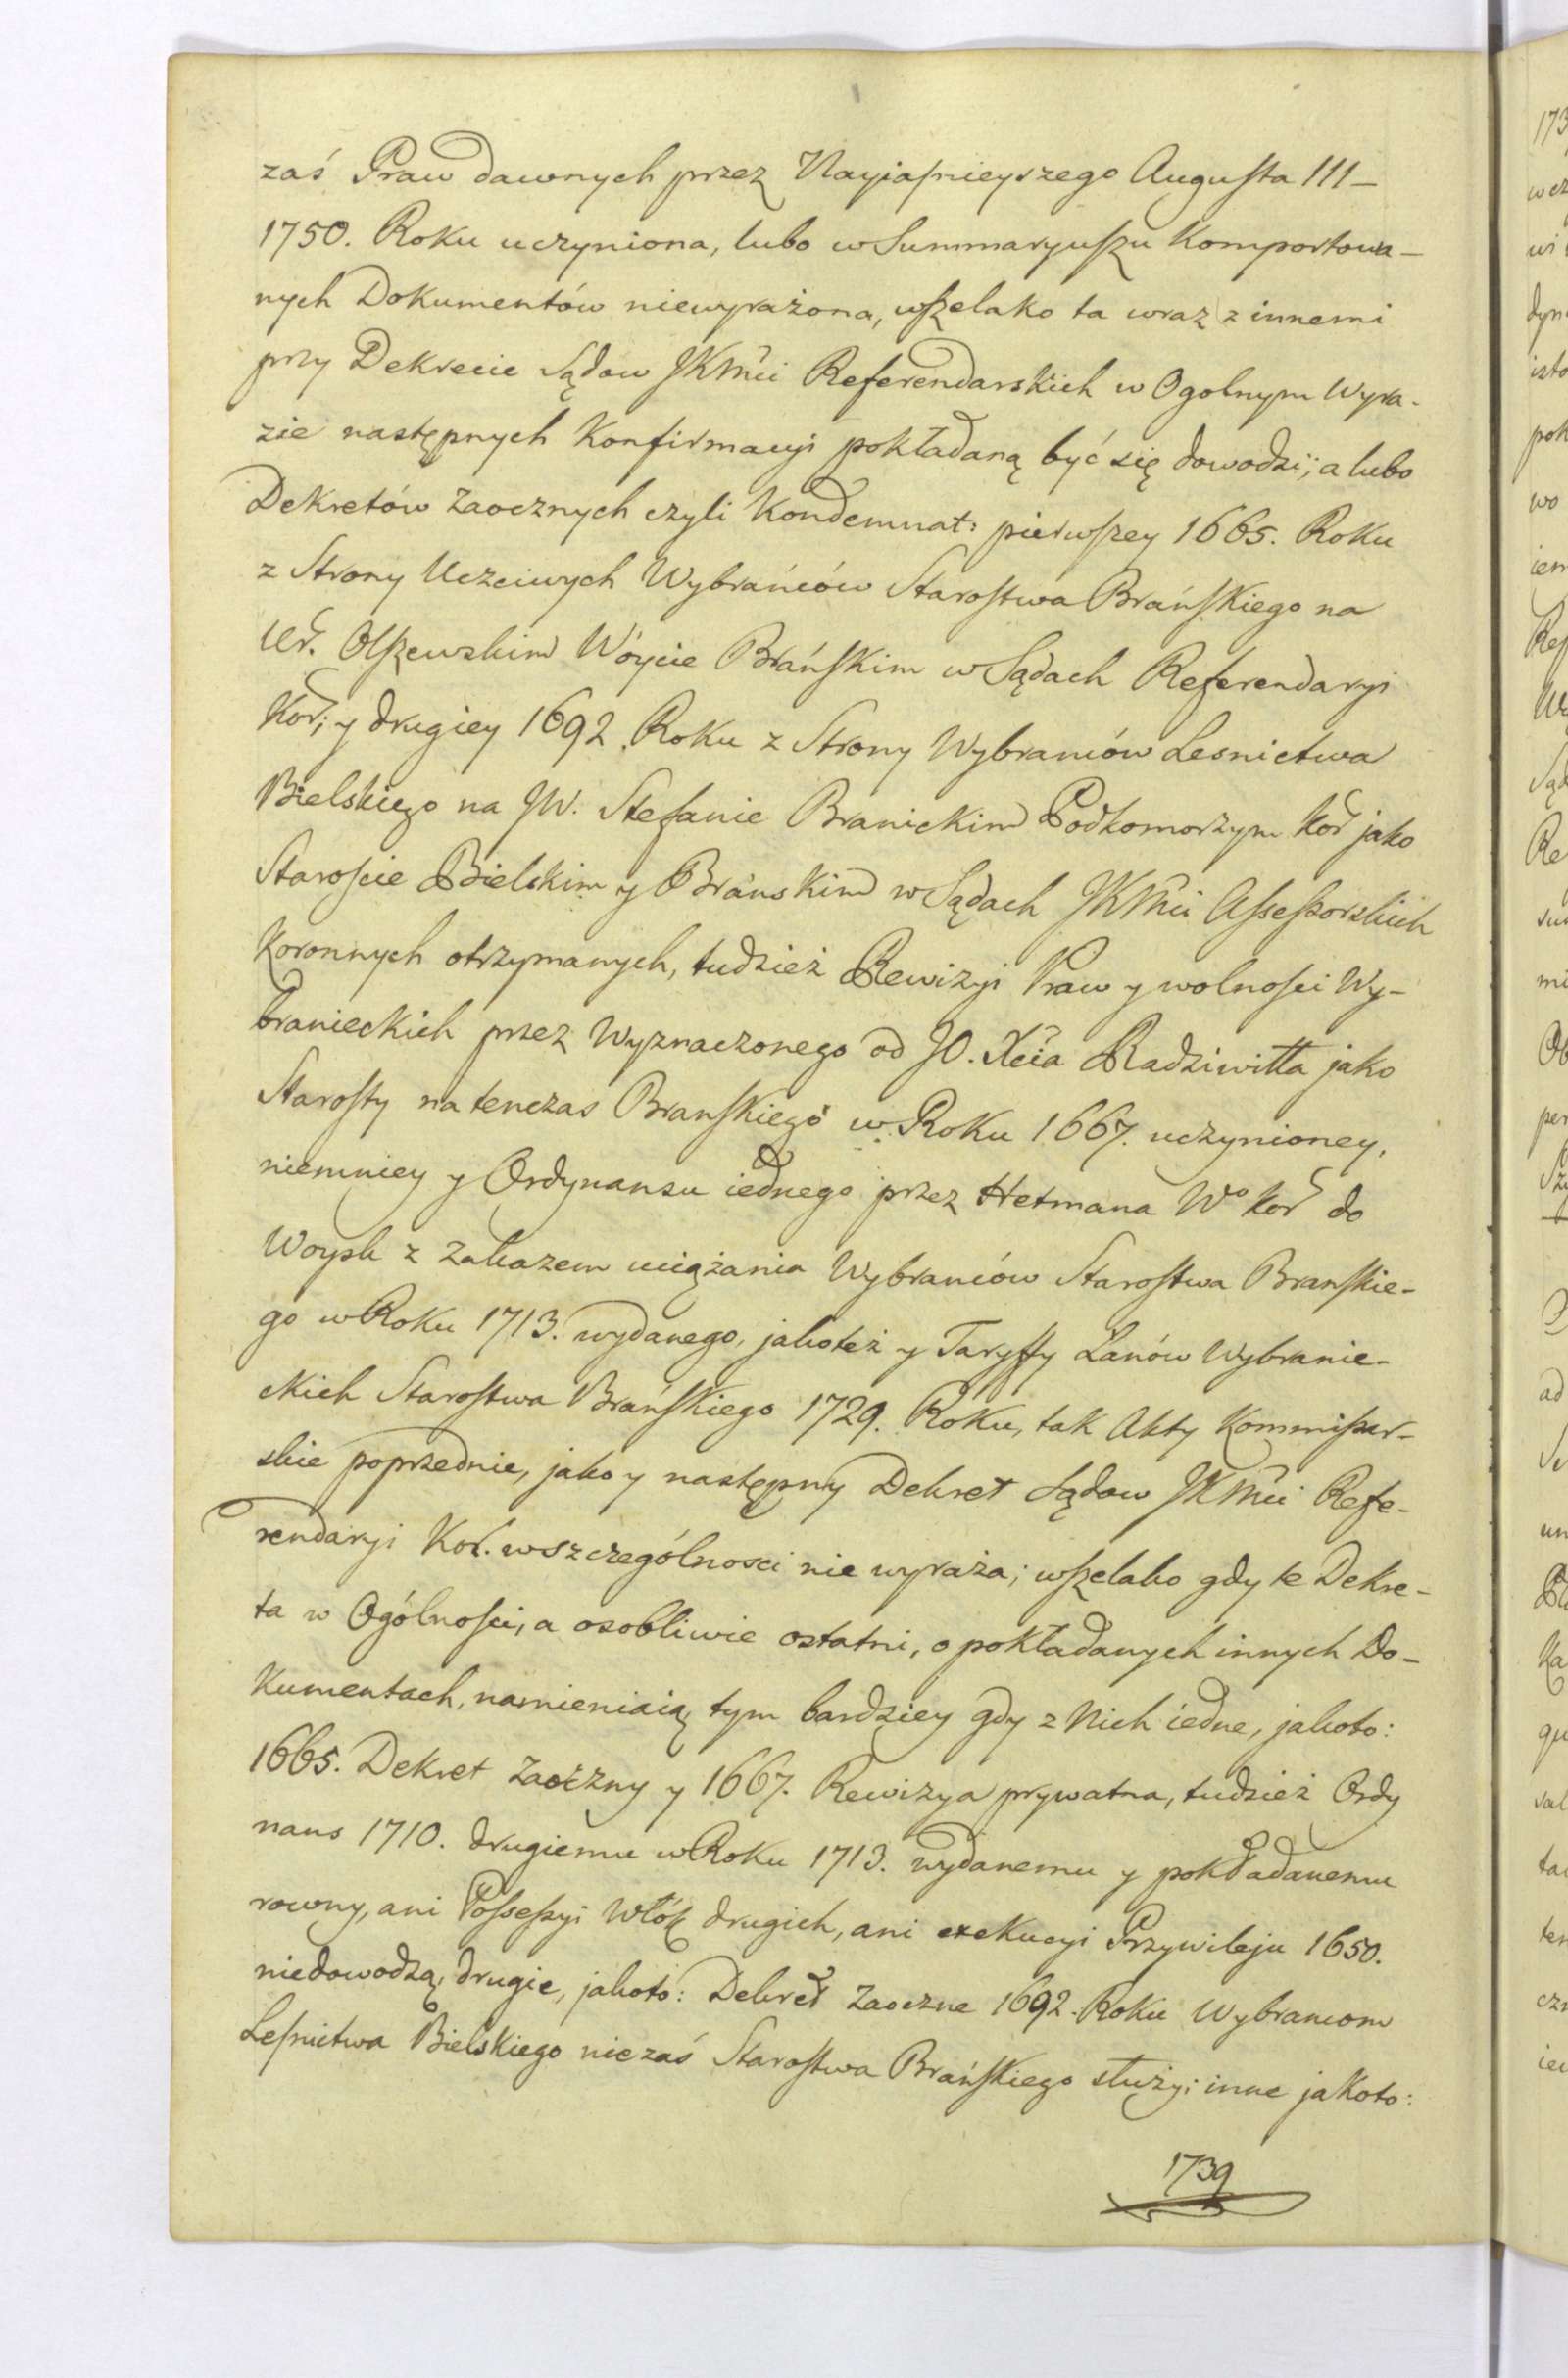 zaś Praw dawnych przez Nayjaśnieyszego Augusta III –
1750. Roku uczyniona, lubo w Summaryuszu Komportowa –
nych Dokumentów niewyrażona, wszelako ta wraz z innemi
przy Dekrecie Sądow JKMci Referendarskich w Ogolnym Wyra-
zie następnych Konfirmacyi pokładaną być się dowodzi; a lubo
Dekretów Zaocznych czyli Kondemnat: pierwszey 1665. Roku
z Strony Uczciwych Wybrańców Starostwa Brańskiego na
Ur. Olszewskim Wóycie Brańskim w Sądach Referendaryi
Kor; y drugiey 1692 Roku z Strony Wybrańców Lesnictwa
Bielskiego na JW. Stefanie Branickim Podkomorzym Kor jako
Staroście Bielskim y Brańskim w Sądach JKMci Assessorskich
Koronnych otrzymanych, tudzież Rewizyi Praw y wolności Wy-
branieckich przez Wyznaczonego od JO. Xcia Radziwiłła jako
Starosty na tenczas Branskiego w Roku 1667. uczynioney,
niemniey y Ordynansu iednego przez Hetmana Wo Kor do
Woysk z Zakazem uciążania Wybrańców Starostwa Branskie-
go w Roku 1713. wydanego, jakoteż y Taryffy Łanów Wybranie-
ckich Starostwa Brańskiego 1729. Roku, tak Akty Kommissar-
skie poprzednie, jako y następny Dekret Sądow JKMci Refe-
rendaryi Kor. wszczególnosci nie wyraża; wszelako gdy te Dekre-
ta w Ogólności, a osobliwie ostatni, o pokładanych innych Do-
kumentach, namieniaią, tym bardziey gdy z Nich iedne, jakoto:
1665. Dekret Zaoczny y 1667. Rewizya prywatna, tudzież Ordy
nans 1710. drugiemu w Roku 1713. wydanemu y pokładanemu
rowny, ani Possessyi Włók drugich, ani exekucyi Przywileju 1650.
niedowodzą, drugie, jakoto: Dekret Zaoczne 1692. Roku Wybrancom
Leśnictwa Bielskiego nie zaś Starostwa Brańskiego służy; inne jakoto:
1739